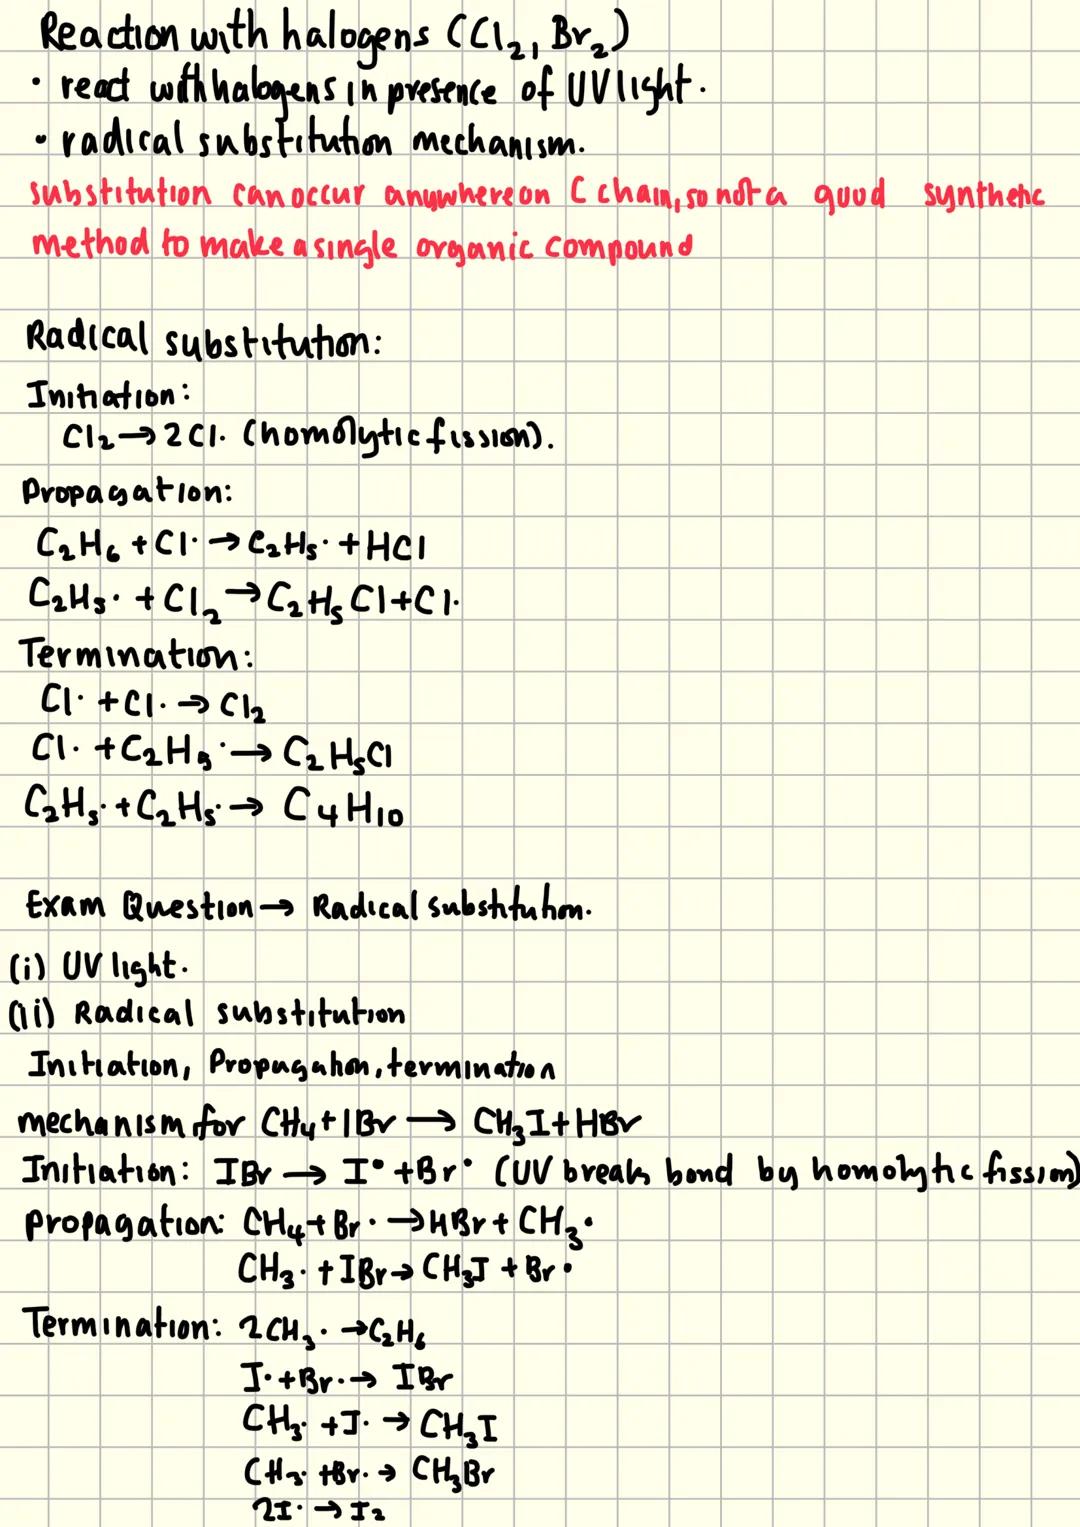 Reaction with halogens (Cl₂, Br₂)
• react with halogens in presence of UV light.
• radical substitution mechanism.
substitution can occur anywhere on C chain, so not a good synthetic
method to make a single organic compound
Radical substitution:
Initiation:
Cl₂ → 2Cl· (homolytic fission).
Propagation:
C₂H₆ + Cl· → C₂H₅· + HCl
C₂H₅· + Cl₂ → C₂H₅Cl + Cl·
Termination:
Cl· + Cl· → Cl₂
Cl· + C₂H₅· → C₂H₅Cl
C₂H₅· + C₂H₅· → C₄H₁₀
Exam Question → Radical substitution.
(i) UV light.
(ii) Radical substitution
Initiation, Propagation, termination
mechanism for CH₄ + IBr → CH₃I + HBr
Initiation: IBr → I• + Br• (UV breaks bond by homolytic fission)
propagation: CH₄ + Br· → HBr + CH₃•
CH₃· + IBr → CH₃I + Br•
Termination: 2CH₃· → C₂H₆
I· + Br· → IBr
CH₃· + I· → CH₃I
CH₃· + Br· → CH₃Br
2I· → I₂